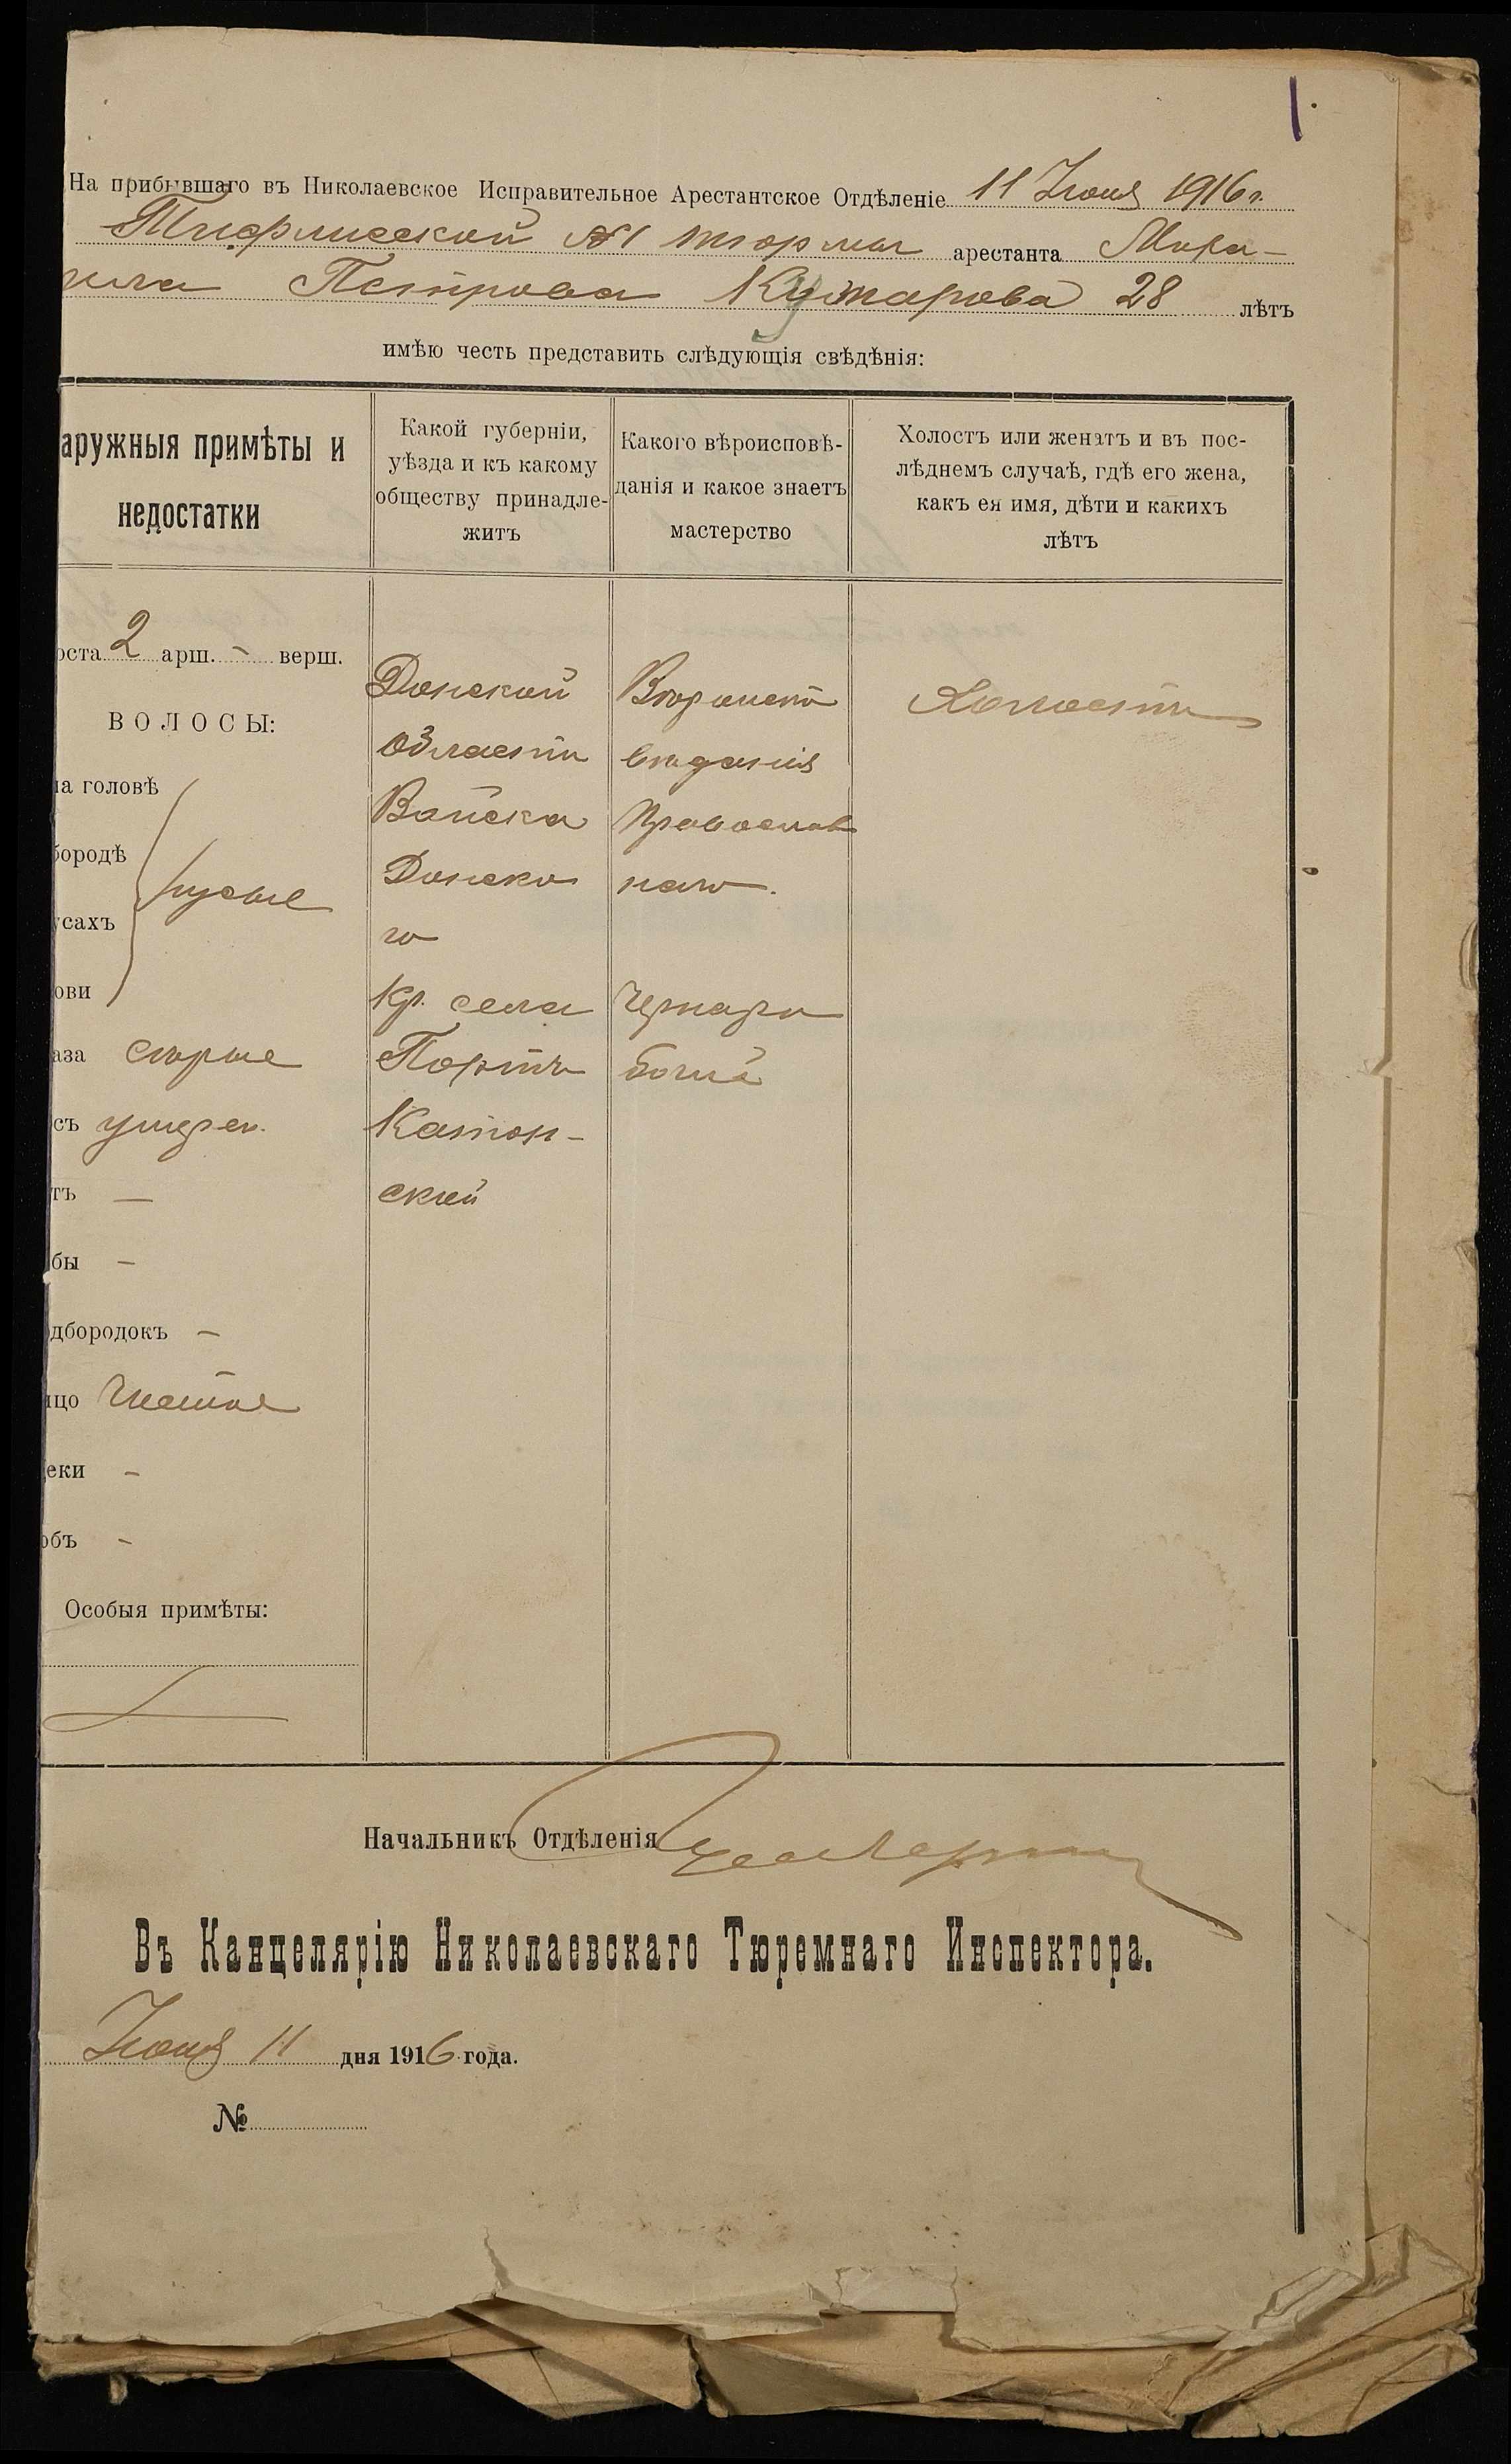 На прибывшаго въ Николаевское Исправительное Арестантское Отдѣленіе 11 Июня 1916 г.
Тифлисской №1 тюрьмы арестанта Миха-
ила Петрова Кутарова 28 лѣтъ
имѣю честь представить слѣдующія свѣдѣнія:
аружныя примѣты и
недостатки
Какой губерніи,
уѣзда и къ какому
обществу принадле-
житъ
Какого вѣроисповѣ-
данія и какое знаетъ
мастерство
Холостъ или женатъ и въ пос-
лѣднемъ случаѣ, гдѣ его жена,
какъ ея имя, дѣти и какихъ
лѣтъ
оста 2 арш. - верш.
ВОЛОСЫ:
на головѣ
бородѣ
усахъ
русые
ови
аза сѣрые
съ умѣрен.
тъ —
бы -
одбородокъ -
ицо Чистое
еки -
объ -
Особыя примѣты:
Донской
Области
Войска
Донско
го
Кр. села
Портъ
Катон-
ский
Вѣроиспо
вѣданія
Православ
наго.
Чернора
бочій
Холостъ
Начальникъ Отдѣленія
Въ Канцелярію Николаевскаго Тюремнаго Инспектора.
Июня 11 дня 1916 года.
№